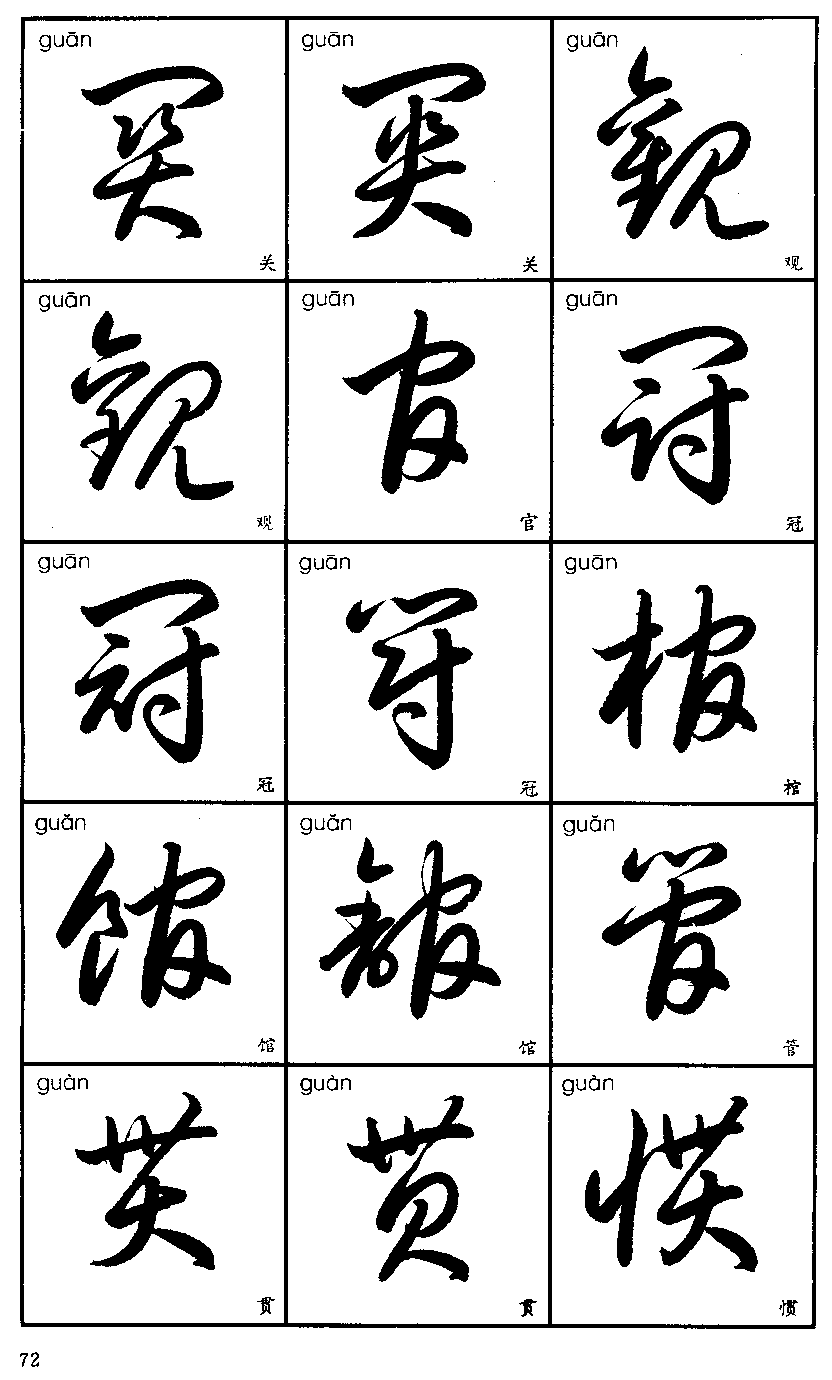 guān guān guān
關 關 觀
关 关 观
guān guān guān
觀 官 冠
观 官 冠
guān guān guān
冠 冠 棺
冠 冠 棺
guǎn guǎn guǎn
館 舘 管
馆 馆 管
guàn guàn guàn
貫 貫 慣
贯 贯 惯
72